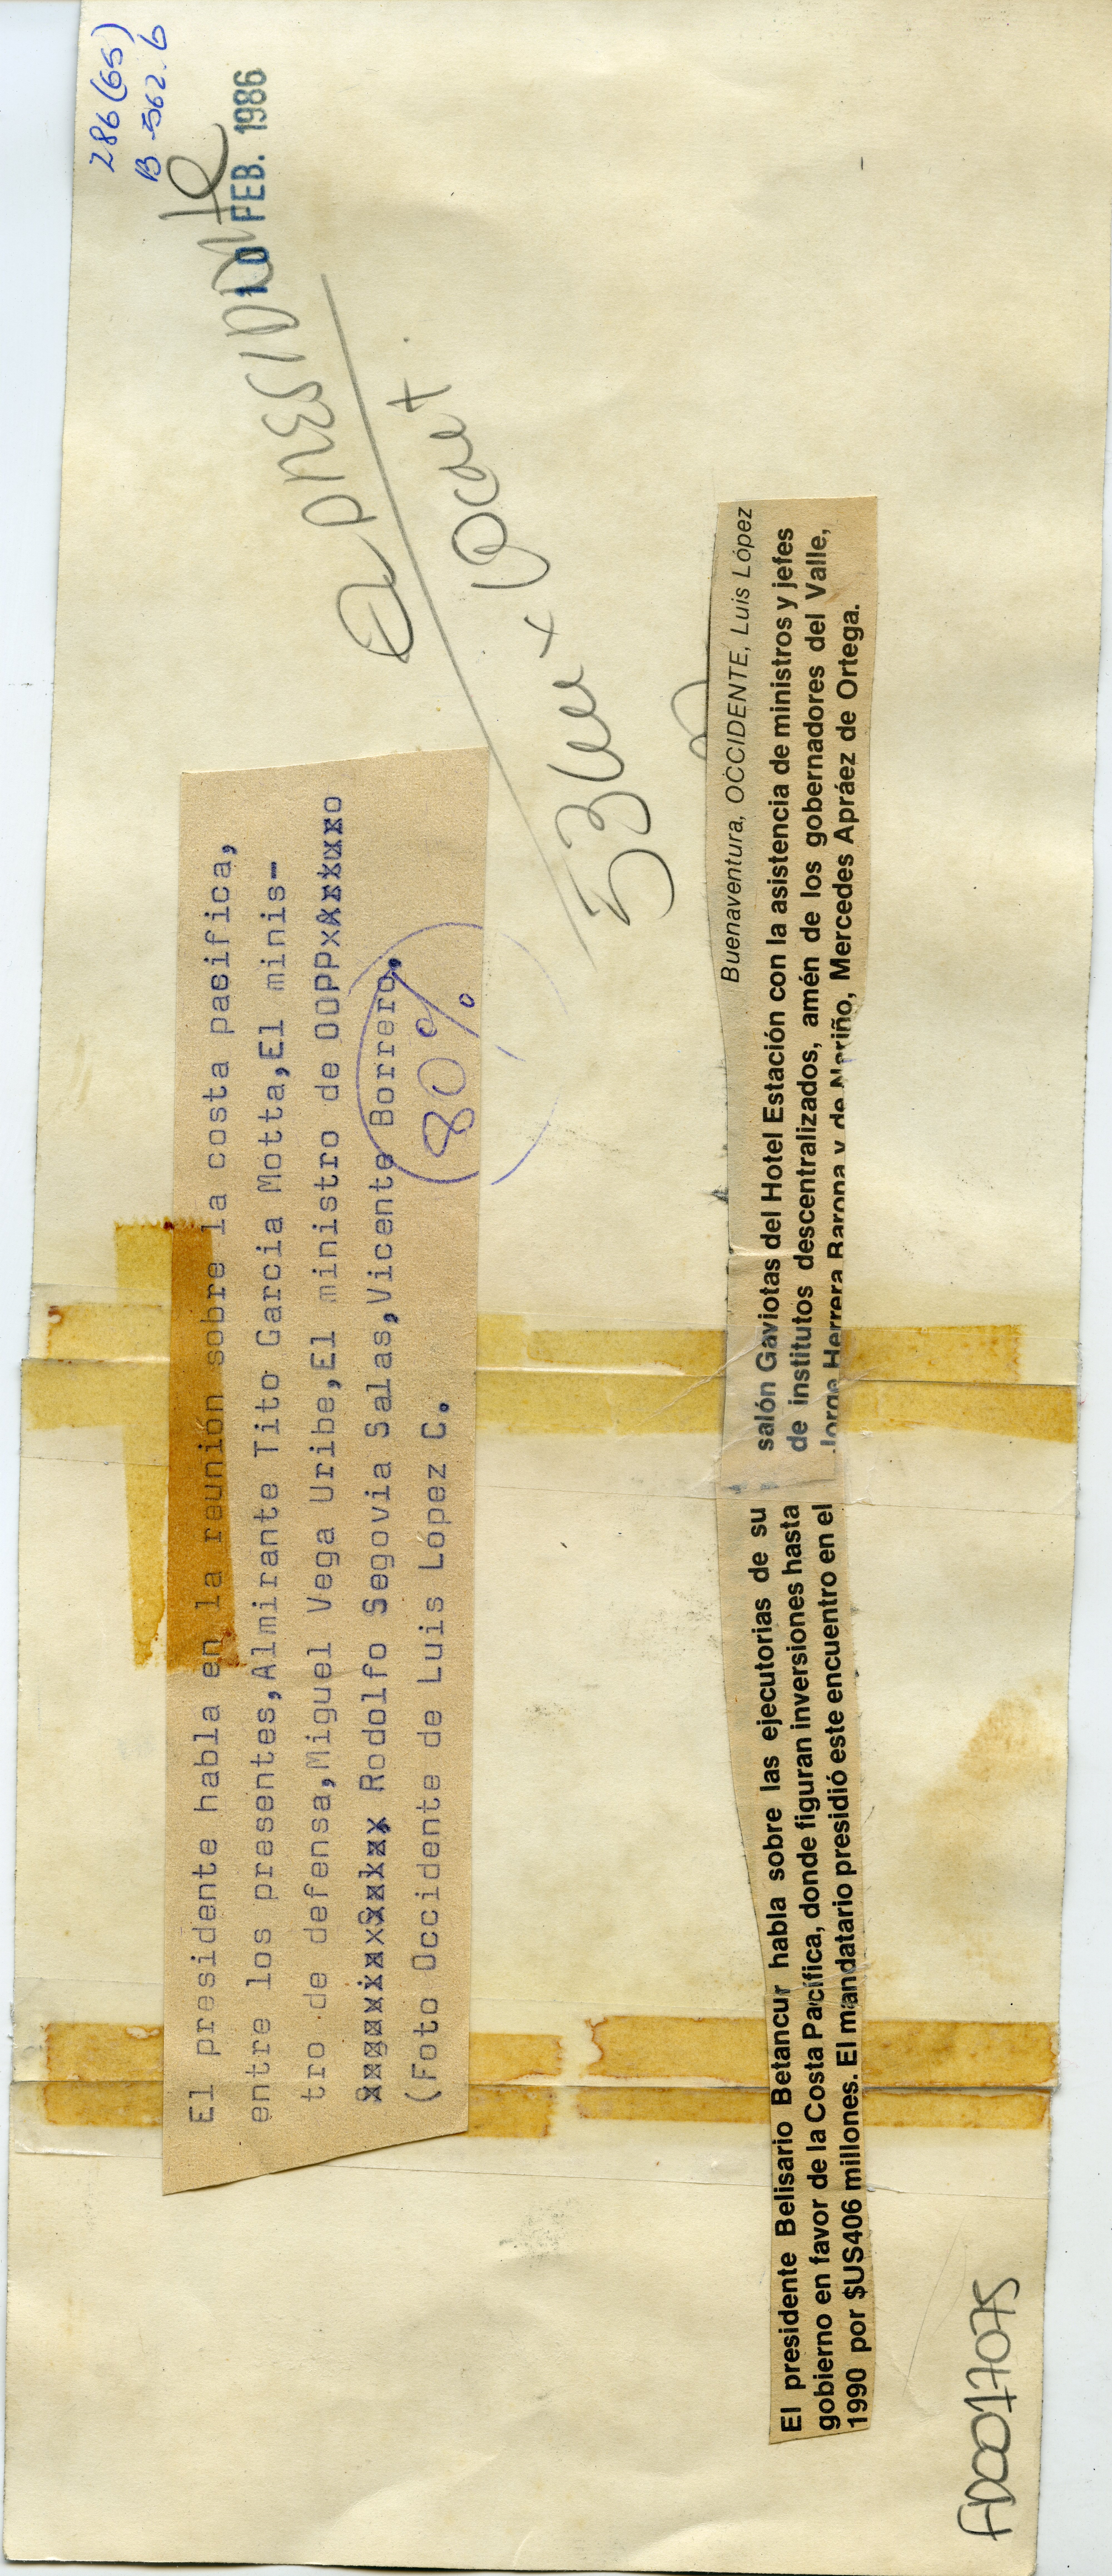 286(65)
B-562.6
10 FEB. 1986
El presidente
53 cu x 10 cut
El presidente habla en la reunión sobre la costa pacifica,
entre los presentes,Almirante Tito Garcia Motta,El minis-
tro de defensa,Miguel Vega Uribe,El ministro de OOPP
Rodolfo Segovia Salas,Vicente Borrero,
(Foto Occidente de Luis López C.
80%
Buenaventura, OCCIDENTE, Luis López
El presidente Belisario Betancur habla sobre las ejecutorias de su
gobierno en favor de la Costa Pacífica, donde figuran inversiones hasta
1990 por $US406 millones. El mandatario presidió este encuentro en el
salón Gaviotas del Hotel Estación con la asistencia de ministros y jefes
de institutos descentralizados, amén de los gobernadores del Valle,
Jorge Herrera Barona y de Nariño, Mercedes Apráez de Ortega.
AD0017075